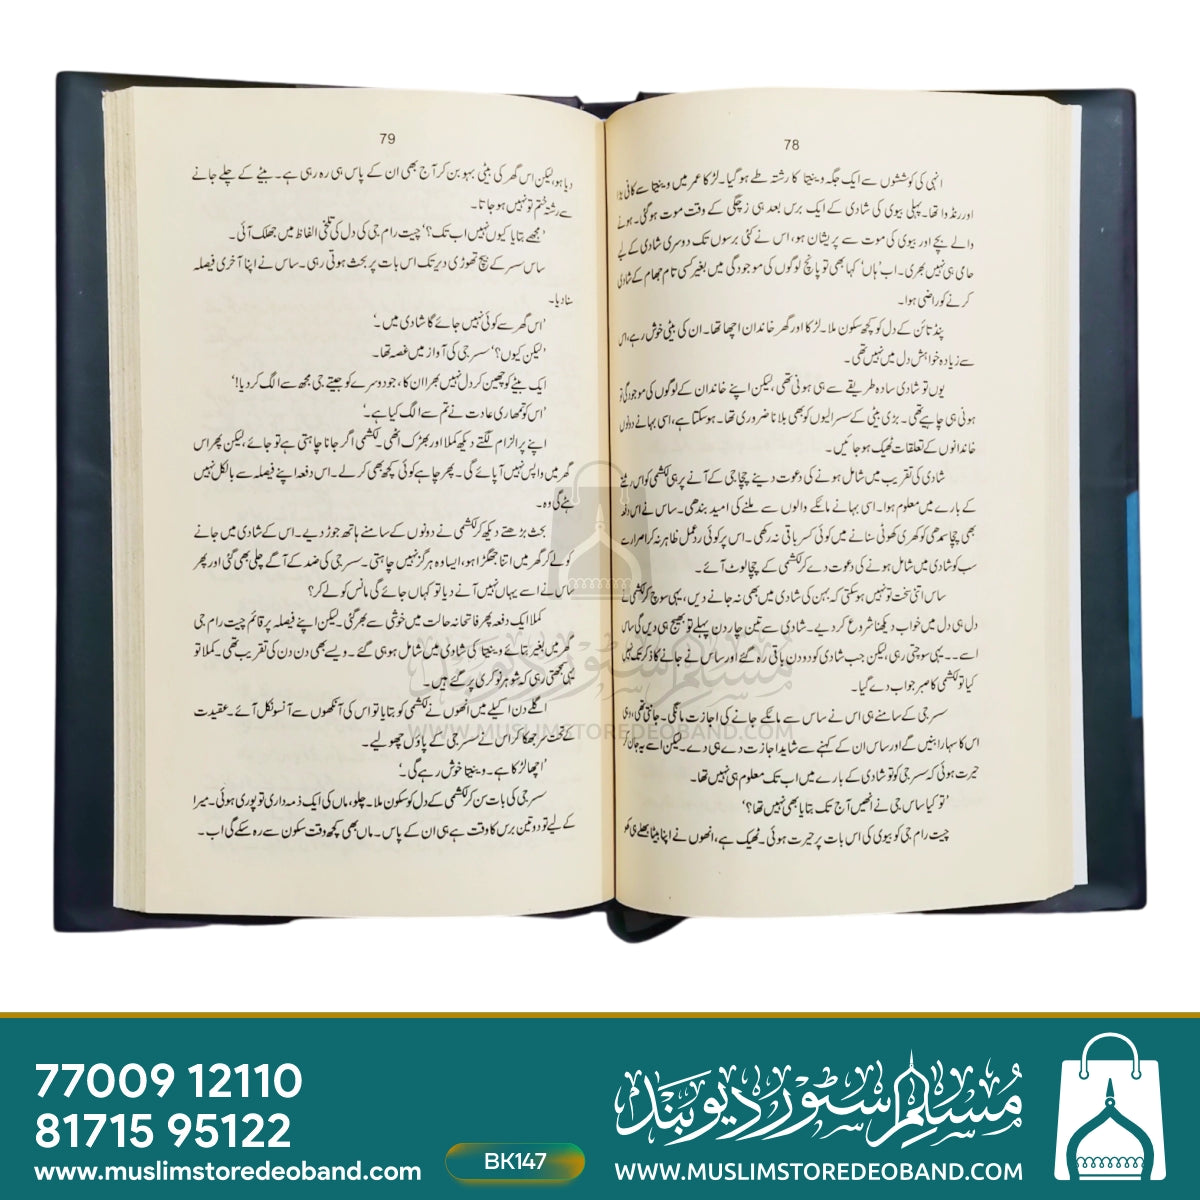 78
انہی کی کوششوں سے ایک جگہ وینیتا کا رشتہ طے ہو گیا۔ لڑکا عمر میں وینیتا سے کافی بڑا
اور رنڈوا تھا۔ پہلی بیوی کی شادی کے ایک برس بعد ہی زچگی کے وقت موت ہو گئی۔ ہونے
والے بچے اور بیوی کی موت سے پریشان ہو، اس نے کئی برسوں تک دوسری شادی کے لیے
حامی ہی نہیں بھری۔ اب 'ہاں' کہا بھی تو پانچ لوگوں کی موجودگی میں بغیر کسی تام جھام کے شادی
کرنے کو راضی ہوا۔
پنڈتائن کے دل کو کچھ سکون ملا۔ لڑکا اور گھر خاندان اچھا تھا۔ ان کی بیٹی خوش رہے، اس
سے زیادہ خواہش دل میں نہیں تھی۔
یوں تو شادی سادہ طریقے سے ہی ہونی تھی، لیکن اپنے خاندان کے لوگوں کی موجودگی تو
ہونی ہی چاہیے تھی۔ بڑی بیٹی کے سسرالیوں کو بھی بلانا ضروری تھا۔ ہو سکتا ہے، اسی بہانے دونوں
خاندانوں کے تعلقات ٹھیک ہو جائیں۔
شادی کی تقریب میں شامل ہونے کی دعوت دینے چچا جی کے آنے پر ہی لکشمی کو اس رشتے
کے بارے میں معلوم ہوا۔ اسی بہانے مائکے والوں سے ملنے کی امید بندھی۔ ساس نے اس دفعہ
بھی چچا سمدھی کو کھری کھوٹی سنانے میں کوئی کسر باقی نہ رکھی۔ اس پر کوئی ردعمل ظاہر نہ کر اصرار سے
سب کو شادی میں شامل ہونے کی دعوت دے کر لکشمی کے چچا لوٹ آئے۔
ساس اتنی سخت تو نہیں ہو سکتی کہ بہن کی شادی میں بھی نہ جانے دیں، یہی سوچ کر لکشمی نے
دل ہی دل میں خواب دیکھنا شروع کر دیے۔ شادی سے تین چار دن پہلے تو بھیج ہی دیں گی ساس
اسے۔۔ یہی سوچتی رہی، لیکن جب شادی کو دو دن باقی رہ گئے اور ساس نے جانے کا ذکر تک نہیں
کیا تو لکشمی کا صبر جواب دے گیا۔
سسر جی کے سامنے ہی اس نے ساس سے مائکے جانے کی اجازت مانگی۔ جانتی تھی، وہی
اس کا سہارا بنیں گے اور ساس ان کے کہنے سے شاید اجازت دے ہی دے۔ لیکن اسے یہ جان کر
حیرت ہوئی کہ سسر جی کو تو شادی کے بارے میں اب تک معلوم ہی نہیں تھا۔
'تو کیا ساس جی نے انھیں آج تک بتایا بھی نہیں تھا؟'
چیت رام جی کو بیوی کی اس بات پر حیرت ہوئی۔ ٹھیک ہے، انھوں نے اپنا بیٹا بھلے ہی کھو
79
دیا ہو، لیکن اس گھر کی بیٹی بہو بن کر آج بھی ان کے پاس ہی رہ رہی ہے۔ بیٹے کے چلے جانے
سے رشتہ ختم تو نہیں ہو جاتا۔
'مجھے بتایا کیوں نہیں اب تک؟' چیت رام جی کی دل کی تلخی الفاظ میں جھلک آئی۔
ساس سسر کے بیچ تھوڑی دیر تک اس بات پر بحث ہوتی رہی۔ ساس نے اپنا آخری فیصلہ
سنا دیا۔
'اس گھر سے کوئی نہیں جائے گا شادی میں۔'
'لیکن کیوں؟' سسر جی کی آواز میں غصہ تھا۔
ایک بیٹے کو چھین کر دل نہیں بھرا ان کا، جو دوسرے کو جیتے جی مجھ سے الگ کر دیا!'
'اس کو تمھاری عادت نے تم سے الگ کیا ہے۔'
اپنے پر الزام لگتے دیکھ کملا اور بھڑک اٹھی۔ لکشمی اگر جانا چاہتی ہے تو جائے، لیکن پھر اس
گھر میں واپس نہیں آ پائے گی۔ پھر چاہے کوئی کچھ بھی کر لے۔ اس دفعہ اپنے فیصلہ سے بالکل نہیں
ہٹے گی وہ۔
بحث بڑھتے دیکھ کر لکشمی نے دونوں کے سامنے ہاتھ جوڑ دیے۔ اس کے شادی میں جانے
کو لے کر گھر میں اتنا جھگڑا ہو، ایسا وہ ہرگز نہیں چاہتی۔ سسر جی کی ضد کے آگے چلی بھی گئی اور پھر
ساس نے اسے یہاں نہیں آنے دیا تو کہاں جائے گی مانس کو لے کر؟
کملا ایک دفعہ پھر فاتحانہ حالت میں خوشی سے بھر گئی۔ لیکن اپنے فیصلہ پر قائم چیت رام جی
گھر میں بغیر بتائے وینیتا کی شادی میں شامل ہو ہی گئے۔ ویسے بھی دن دن کی تقریب تھی۔ کملا تو
یہی سمجھتی رہی کہ شوہر نوکری پر گئے ہیں۔
اگلے دن اکیلے میں انھوں نے لکشمی کو بتایا تو اس کی آنکھوں سے آنسو نکل آئے۔ عقیدت
کے تحت سر جھکا کر اس نے سسر جی کے پاؤں چھو لیے۔
'اچھا لڑکا ہے۔ وینیتا خوش رہے گی۔'
سسر جی کی بات سن کر لکشمی کے دل کو سکون ملا۔ چلو، ماں کی ایک ذمہ داری تو پوری ہوئی۔ میرا
کے لیے تو دو تین برس کا وقت ہے ہی ان کے پاس۔ ماں بھی کچھ وقت سکون سے رہ سکے گی اب۔
مسلم سٹور دیوبند
WWW.MUSLIMSTOREDEOBAND.COM
77009 12110
81715 95122
www.muslimstoredeoband.com
BK147
مسلم سٹور دیوبند
WWW.MUSLIMSTOREDEOBAND.COM